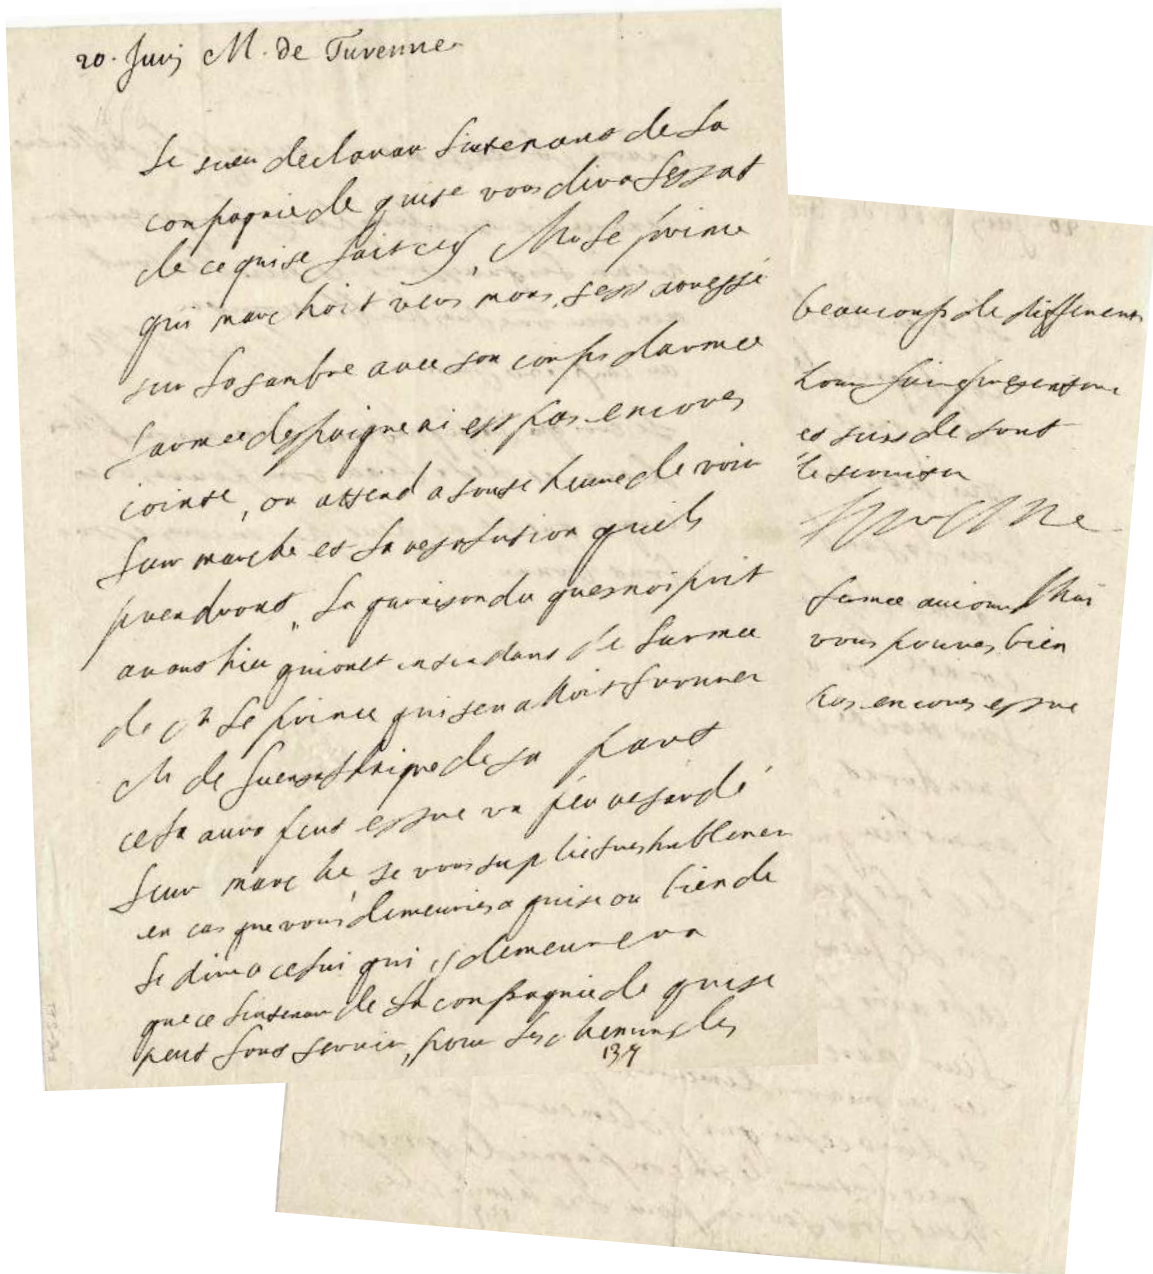 20. Juin M. de Turenne
Le sieur declavau lieutenant de la
compagnie de guise vous dira lestat
de ce qui se fait icy, Mr le prince
qui marchoit vers mons, sest adressé
sur la sambre avec son corps darmee
larmee despaigne ni est pas encores
iointe, on attend a toute heure de voir
leur marche et la resolution quils
prendront, la garnison du quesnoi prit
avant hier qui ont intendant de larmee
de Mr le prince qui sen alloit trouver
M de fuensaldaigne de sa part
cela aura peut estre un peu retardé
leur marche, je vous suplie tres humblement
en cas que vous demeuries a guise ou bien de
le dire a celui qui y demeurera
que ce lieutenant de la compagnie de guise
peut fort servir, pour les chemins des
134
beaucoup de differents
et suis de tout
le serviteur
Turenne
larmee auiourdhui
vous pouves bien
pas encores estre